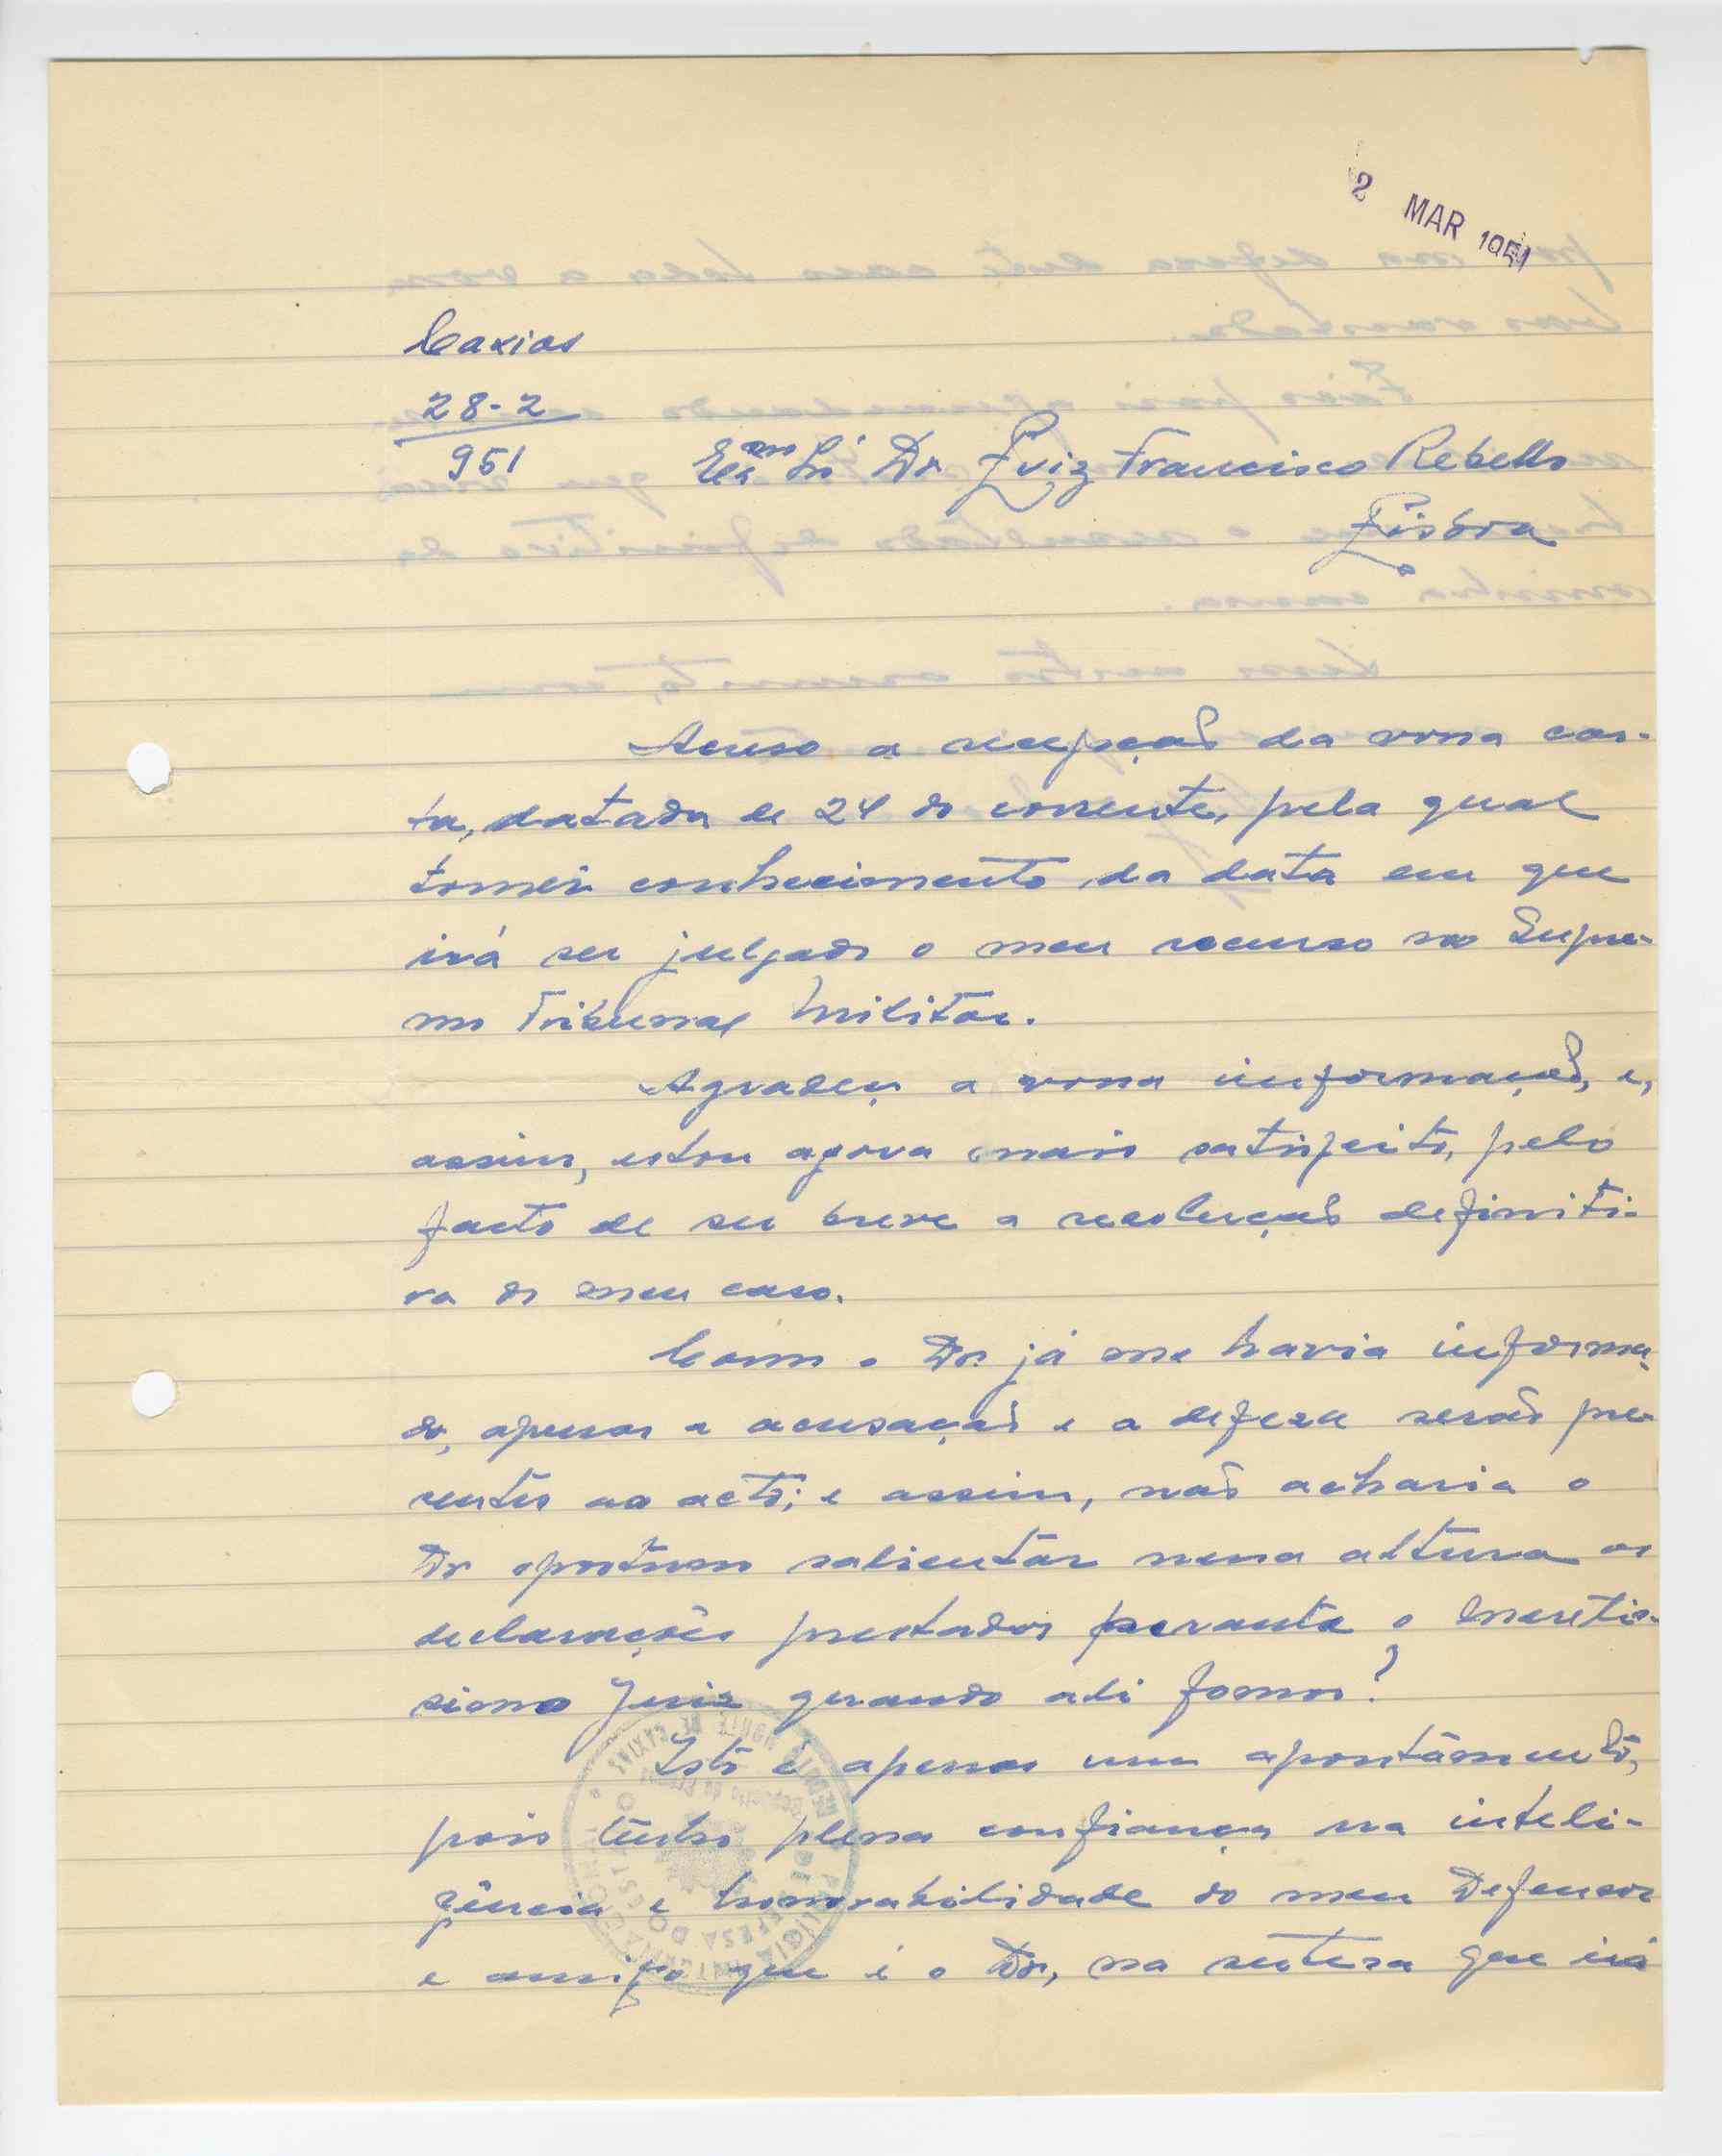 2 MAR 1951
Caxias
28-2
951
Exmo Sr Dr Luiz Francisco Rebello
Lisboa
Acuso a recepção da vossa car-
ta, datada de 24 do corrente, pela qual
tomei conhecimento da data em que
irá ser julgado o meu recurso no Supre-
mo Tribunal Militar.
Agradeço a vossa informação, e,
assim, estou agora mais satisfeito, pelo
facto de ser breve a resolução definiti-
va do meu caso.
Como o Dr. já me havia informa-
do, apenas a acusação e a defeza serão pre-
sentes ao acto; e assim, não acharia o
Dr oportuno salientar nessa altura as
declarações prestadas perante o Meretis-
simo Juiz quando ali fomos?
Isto é apenas um apontamento,
pois tenho plena confiança na inteli-
gência e honorabilidade do meu Defensor
e amigo que é o Dr, na certeza que irá